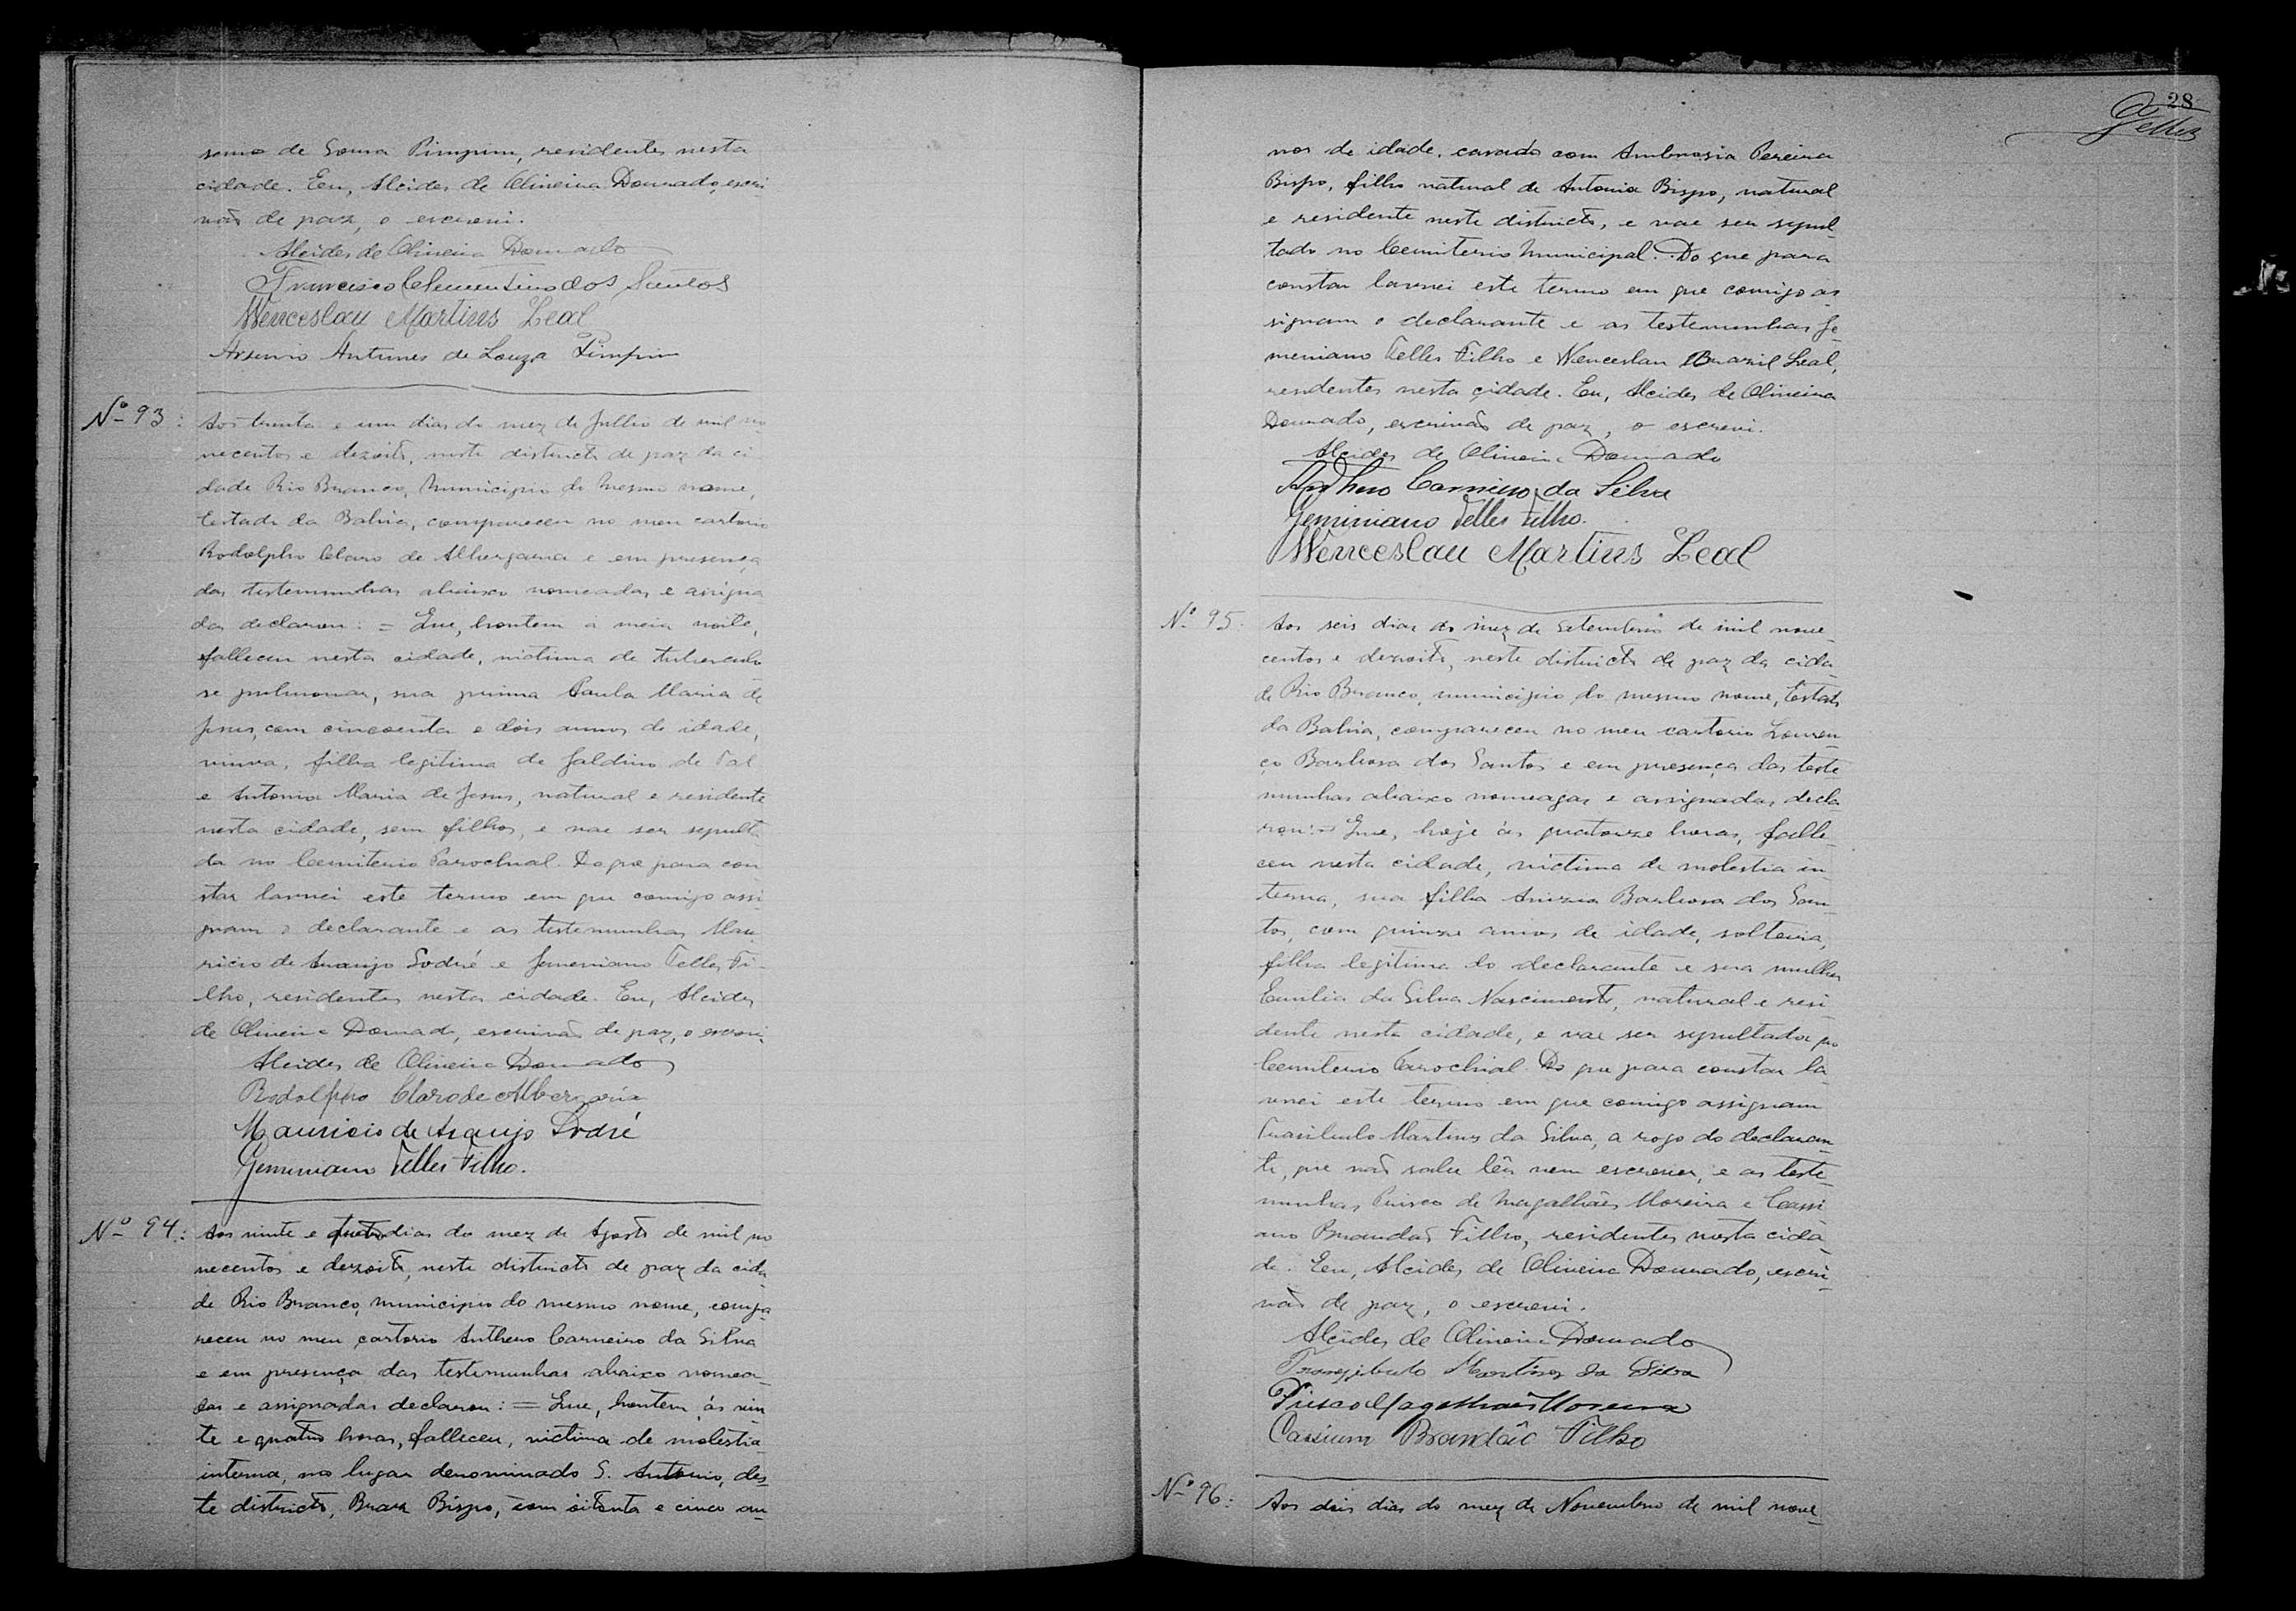 seno de Sousa Pimpim, residentes nesta
cidade. Eu, Alcides de Oliveira Dourado, escri
vão de paz, o escrevi.
Alcides de Oliveira Dourado
Francisco Clementino dos Santos
Wenceslau Martins Leal
Arsenio Antunes de Souza Pimpim
Nº 93:
Aos trinta e um dias do mez de Julho de mil no
vecentos e dezoito, neste districto de paz da ci
dade Rio Branco, Municipio do mesmo nome,
Estado da Bahia, compareceu no meu cartorio
Rodolpho Claro de Albergaria e em presença
das testemunhas abaixo nomeadas e assigna
das declarou: = Que, hontem a meia noite,
falleceu nesta cidade, victima de tuberculo
se pulmonar, sua prima Paula Maria de
Jesus, com cincoenta e dois annos de idade,
viuva, filha legitima de Galdino de Tal
e Antonia Maria de Jesus, natural e residente
nesta cidade, sem filhos, e vae ser sepulta
da no Cemiterio Parochial. Do que para con
star lavrei este termo em que comigo assi
gnam o declarante e as testemunhas Mau
ricio de Araujo Sodré e Geminiano Telles Fi-
lho, residentes nesta cidade. Eu, Alcides
de Oliveira Dourado, escrivão de paz, o escrevi
Alcides de Oliveira Dourado
Rodolpho Claro de Albergaria
Mauricio de Araujo Sodré
Geminiano Telles Filho.
Nº 94:
Aos vinte e quatro dias do mez de Agosto de mil no
vecentos e dezoito, neste districto de paz da cida
de Rio Branco, municipio do mesmo nome, compa-
receu no meu cartorio Anthero Carneiro da Silva
e em presença das testemunhas abaixo nomea-
das e assignadas declarou: = Que, hontem, ás vin
te e quatro horas, falleceu, victima de molestia
interna, no lugar denominado S. Antonio, des-
te districto, Braz Bispo, com oitenta e cinco an-
28
Telles
nos de idade, casado com Ambrosia Pereira
Bispo, filho natural de Antonia Bispo, natural
e residente neste districto, e vae ser sepul-
tado no Cemiterio Municipal. Do que para
constar lavrei este termo em que comigo as
signam o declarante e as testemunhas Ge-
meniano Telles Filho e Wenceslau Brazil Leal,
residentes nesta cidade. Eu, Alcides de Oliveira
Dourado, escrivão de paz, o escrevi.
Alcides de Oliveira Dourado
Anthero Carneiro da Silva
Geminiano Telles Filho.
Wenceslau Martins Leal
Nº 95.
Aos seis dias do mez de Setembro de mil nove-
centos e dezoito, neste districto de paz da cida
de Rio Branco, municipio do mesmo nome, Estado
da Bahia, compareceu no meu cartorio Louren-
ço Barbosa dos Santos e em presença das teste-
munhas abaixo nomeagas e assignadas, decla
rou: = Que, hoje ás quatorze horas, falle-
ceu nesta cidade, victima de molestia in-
terna, sua filha Anizia Barbosa dos San-
tos, com quinze annos de idade, solteira,
filha legitima do declarante e sua mulher
Emilia da Silva Nascimento, natural e resi-
dente nesta cidade, e vae ser sepultada no
Cemiterio Parochial. Do que para constar la-
vrei este termo em que comigo assignam
Trasibulo Martins da Silva, a rogo do declaran-
te, que não sabe lêr nem escrever, e as teste-
munhas, Prisco de Magalhães Moreira e Cassi
ano Brandão Filho, residentes nesta cida-
de. Eu, Alcides de Oliveira Dourado, escri-
vão de paz, o escrevi.
Alcides de Oliveira Dourado
Trasybulo Martins da Silva
Prisco Magalhães Moreira
Cassiano Brandão Filho
Nº 96:
Aos dois dias do mez de Novembro de mil nove-